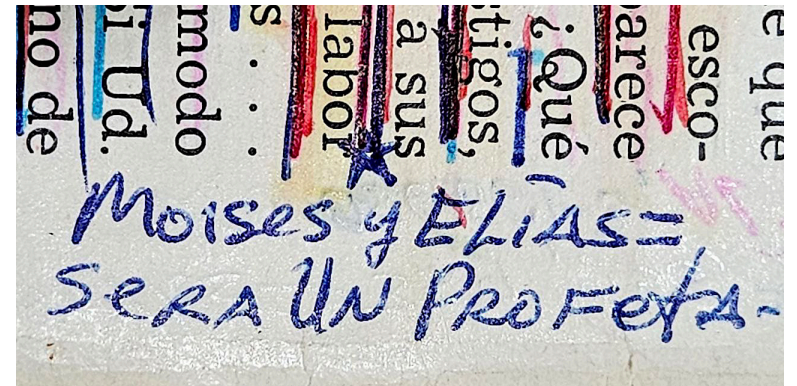 e que
esco-
arece
¿Qué
stigos,
a sus
labor
s . . .
modo
si Ud.
no de
Moises y ELÍAS=
SERA UN PROFetA-